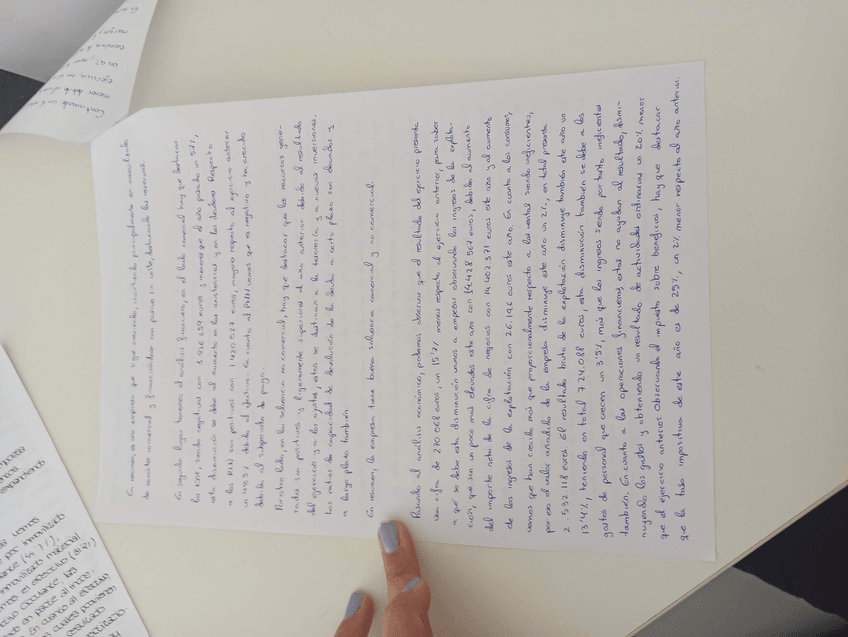 En resumen, es una empresa que sigue creciendo, invirtiendo principalmente en inmovilizado
de carácter comercial y financiándose con pasivo sin coste, destacando las reservas.
En segundo lugar tenemos el análisis financiero, en el lado comercial hay que destacar
las NOF, siendo negativas con 1.936.259 euros y menores que el año pasado un 57%,
esta disminución se debe al aumento en las existencias y en los deudores. Respecto
a los RLN son positivos con 1.420.527 euros, mayores respecto al ejercicio anterior
un debido al efectivo. En cuanto al vemos que es negativo y ha crecido
debido al subperiodo de pago.
Por otro lado, en la solvencia no comercial, hay que destacar que los recursos gene-
rados son positivos y ligeramente superiores al año anterior debido al resultado
del ejercicio y a los ajustes, estos se destinan a la tesorería y a nuevas inversiones.
Los ratios de capacidad de devolución de la deuda a corto plazo son elevados y
a largo plazo también.
En resumen, la empresa tiene buena solvencia comercial y no comercial.
Pasando al análisis económico, podemos observar que el resultado del ejercicio presenta
una cifra de 270.068 euros, un 15'7% menos respecto al ejercicio anterior, para saber
a qué se debe esta disminución vamos a empezar observando los ingresos de la explota-
ción, que son un poco más elevados este año con 14.428.567 euros, debido al aumento
del importe neto de la cifra de negocios con 14.402.371 euros este año y al aumento
de los ingresos de la explotación con 26.196 euros este año. En cuanto a los consumos,
vemos que han crecido más que proporcionalmente respecto a las ventas siendo ineficientes,
por eso el valor añadido de la empresa disminuye este año un 2%, en total presenta
2.532.118 euros. El resultado bruto de la explotación disminuye también este año un
13'4%, teniendo en total 724.088 euros, esta disminución también se debe a los
gastos de personal que crecen un 3'5%, más que los ingresos siendo por tanto ineficientes
también. En cuanto a las operaciones financieras estas no ayudan al resultado, dismi-
nuyendo los gastos y obteniendo un resultado de actividades ordinarias un 20% menor
que el ejercicio anterior. Observando el impuesto sobre beneficios, hay que destacar
que la tasa impositiva de este año es de 25%, un 2% menor respecto al año anterior.